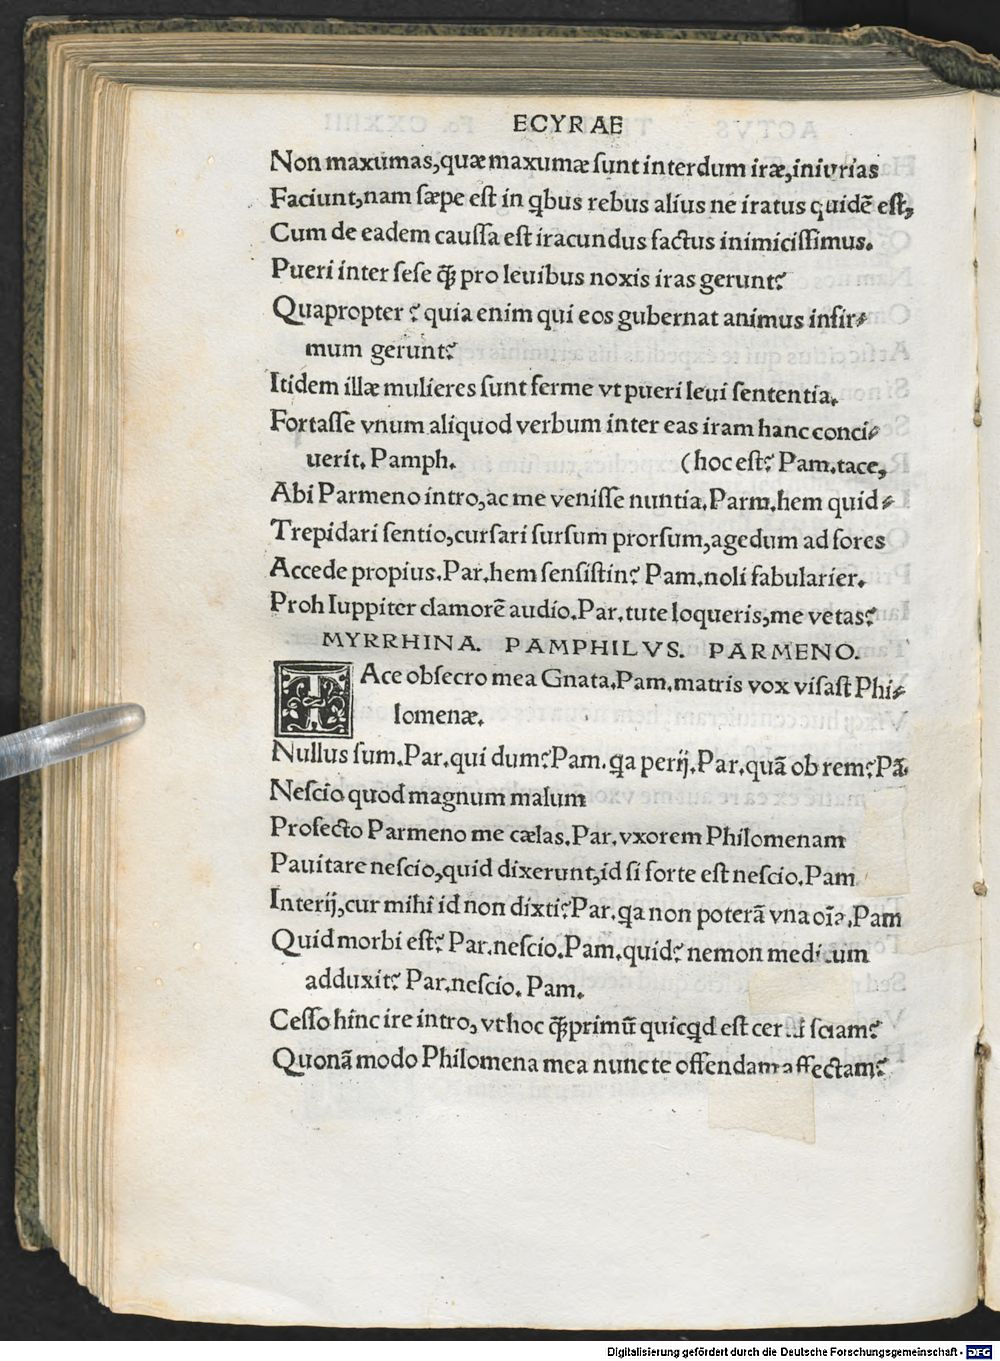 ECYRAE
Non maxumas,quæ maxumæ ſunt interdum iræ,iniurias
Faciunt,nam ſæpe eſt in ꝗbus rebus alius ne iratus quidē eſt,
Cum de eadem cauſſa eſt iracundus factus inimiciſſimus.
Pueri inter ſeſe ꝙ̃ pro leuibus noxis iras gerunt?
Quapropter ? quia enim qui eos gubernat animus infir-
mum gerunt?
Itidem illæ mulieres ſunt ferme vt pueri leui ſententia.
Fortaſſe vnum aliquod verbum inter eas iram hanc conci-
uerit. Pamph. (hoc eſt? Pam.tace,
Abi Parmeno intro,ac me veniſſe nuntia.Parm.hem quid-
Trepidari ſentio,curſari ſurſum prorſum,agedum ad fores
Accede propius.Par.hem ſenſiſtin? Pam.noli fabularier.
Proh Iuppiter clamorē audio.Par.tute loqueris,me vetas?
MYRRHINA. PAMPHILVS. PARMENO.
TAce obſecro mea Gnata.Pam.matris vox viſaſt Phi-
lomenæ.
Nullus ſum.Par.qui dum?Pam.ꝗa perij.Par.quã ob rem?Pã.
Neſcio quod magnum malum
Profecto Parmeno me cælas.Par.vxorem Philomenam
Pauitare neſcio,quid dixerunt,id ſi forte eſt neſcio.Pam
Interij,cur mihi id non dixti?Par.ꝗa non poterã vna oĩa.Pam
Quid morbi eſt? Par.neſcio.Pam.quid? nemon medicum
adduxit? Par.neſcio. Pam.
Ceſſo hinc ire intro, vt hoc ꝙ̃primũ quicꝗd eſt ſciam?
Quonã modo Philomena mea nunc te offendam affectam?
Digitalisierung gefördert durch die Deutsche Forschungsgemeinschaft - DFG